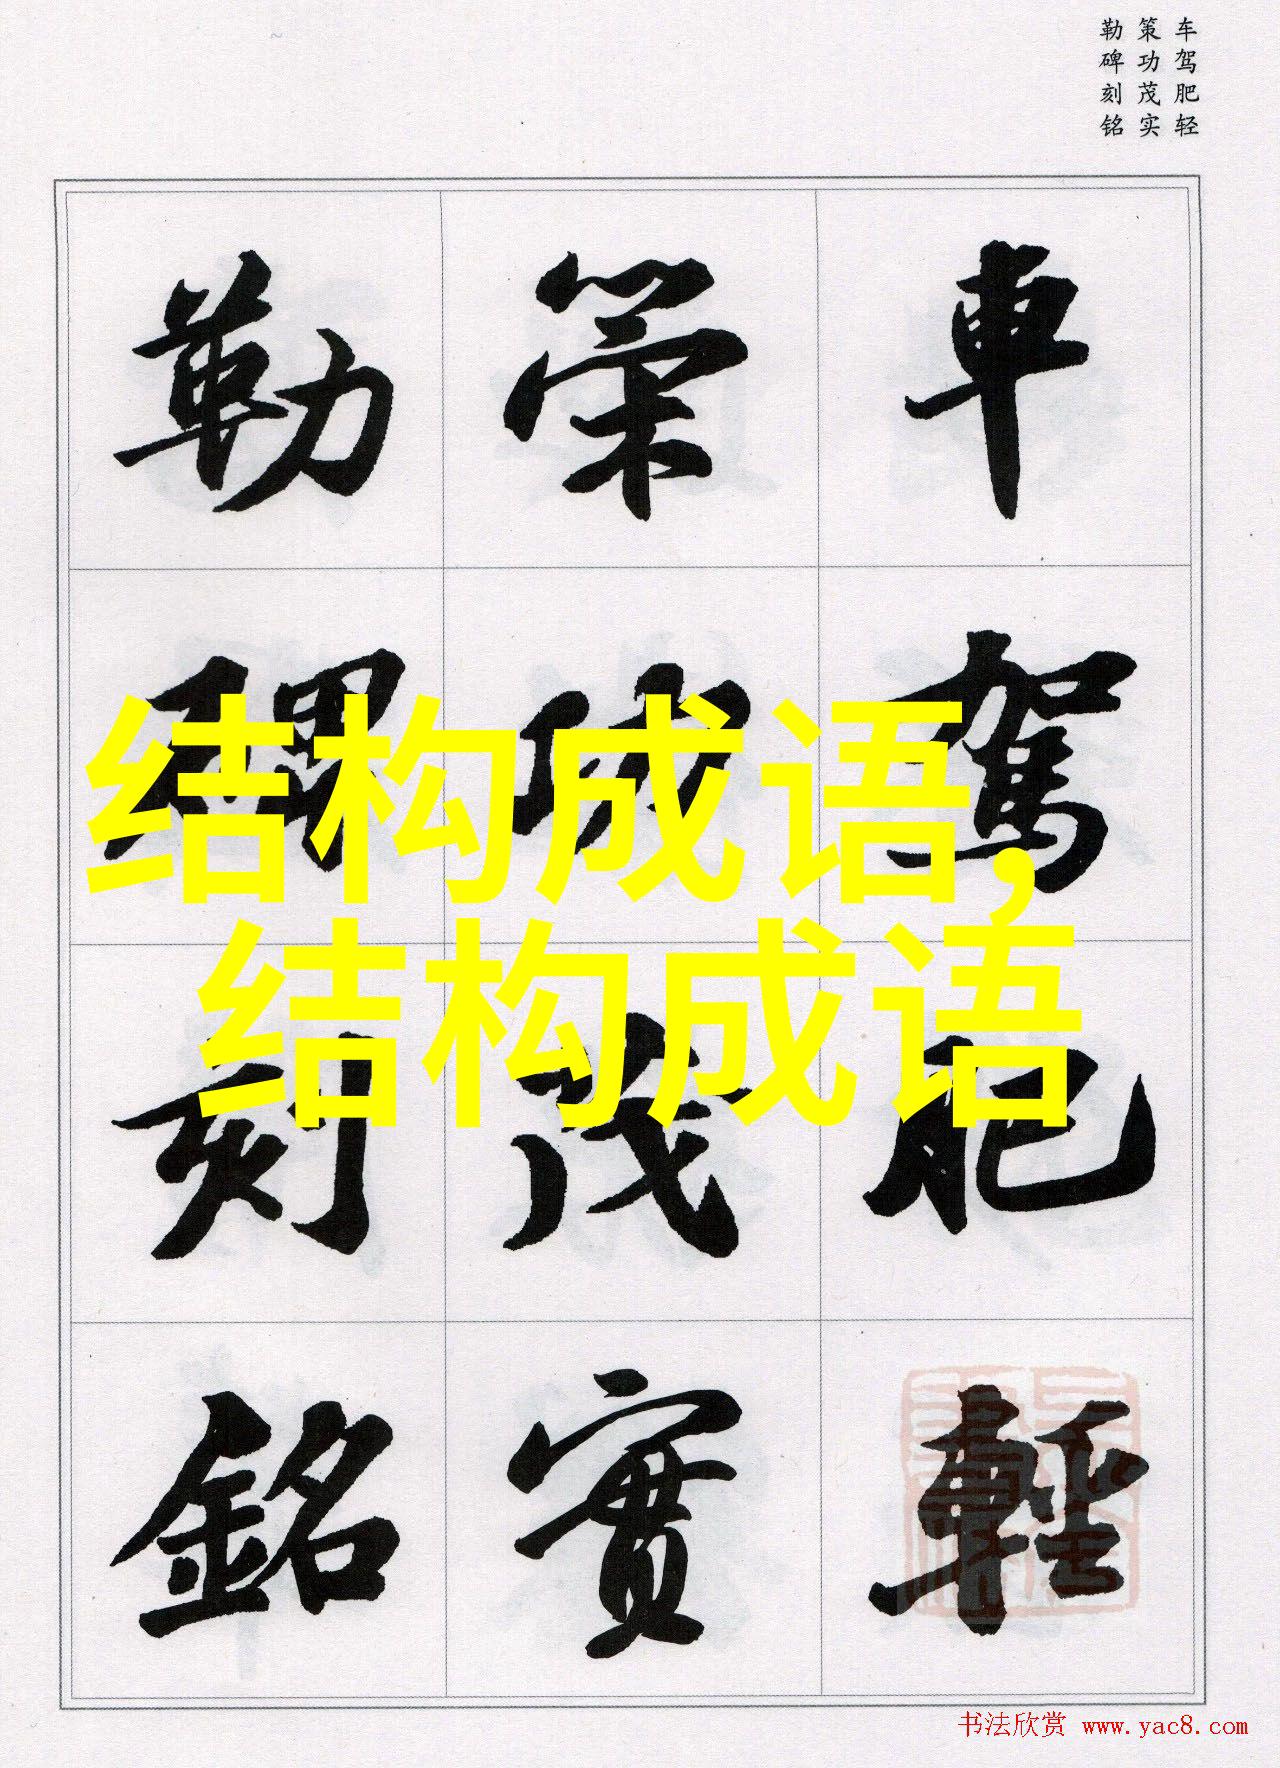 车驾肥轻
策功茂实
勒碑刻铭
車駕肥輕
策功茂實
勒碑刻銘
结构成语,
结构成语
书法欣赏 www.yac8.com